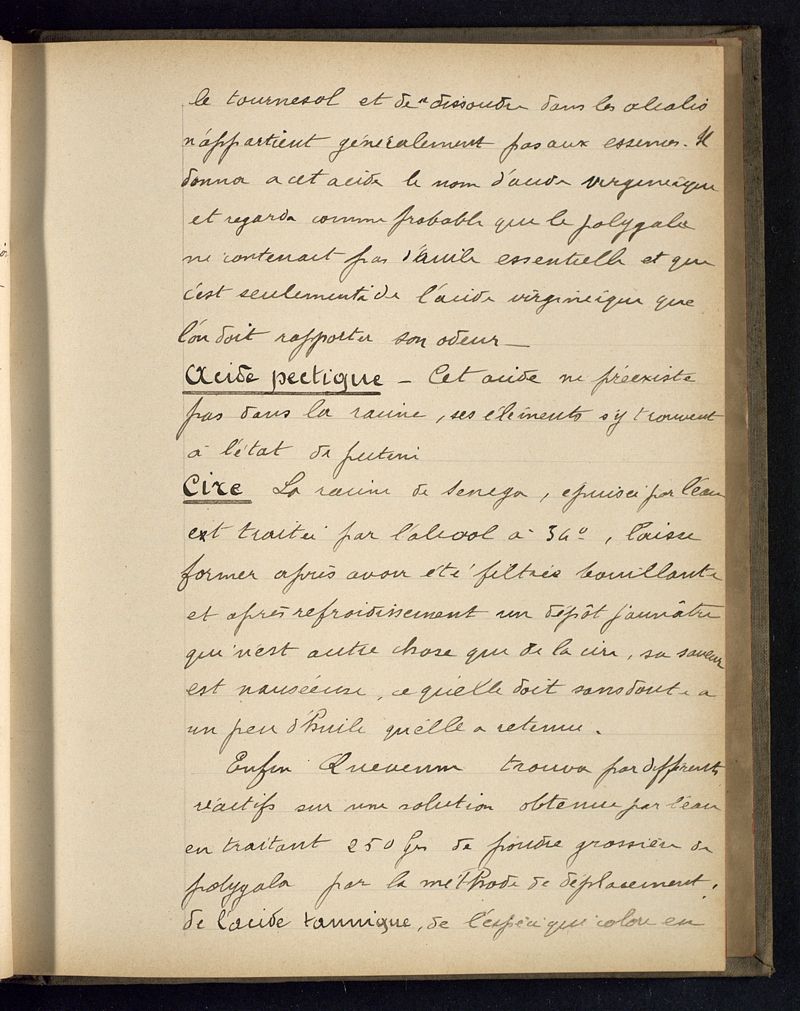 le tournesol et de dissoudre dans les alcalis
n'appartient généralement pas aux essences. Il
donna a cet acide le nom d'acide virginéique
et regarda comme probable que le polygala
ne contenait pas d'huile essentielle et que
c'est seulement à de l'acide virginéique que
l'on doit rapporter son odeur _
Acide pectique - Cet acide ne préexiste
pas dans la racine, ses éléments s'y trouvent
à l'état de
Cire La racine de Senega, épuisée par l'eau
est traitée par l'alcool à 34°, laisse
former après avoir été filtrée bouillante
et après refroidissement un dépôt jaunâtre
qui n'est autre chose que de la cire, sa saveur
est nauséeuse, ce qu'elle doit sans doute a
un peu d'huile qu'elle a retenue.
Enfin Quevenne trouva par différents
réactifs sur une solution obtenue par l'eau
en traitant 250 Grs de poudre grossière de
polygala par la méthode de déplacement,
de l'acide tannique, de l'espèce qui colore en